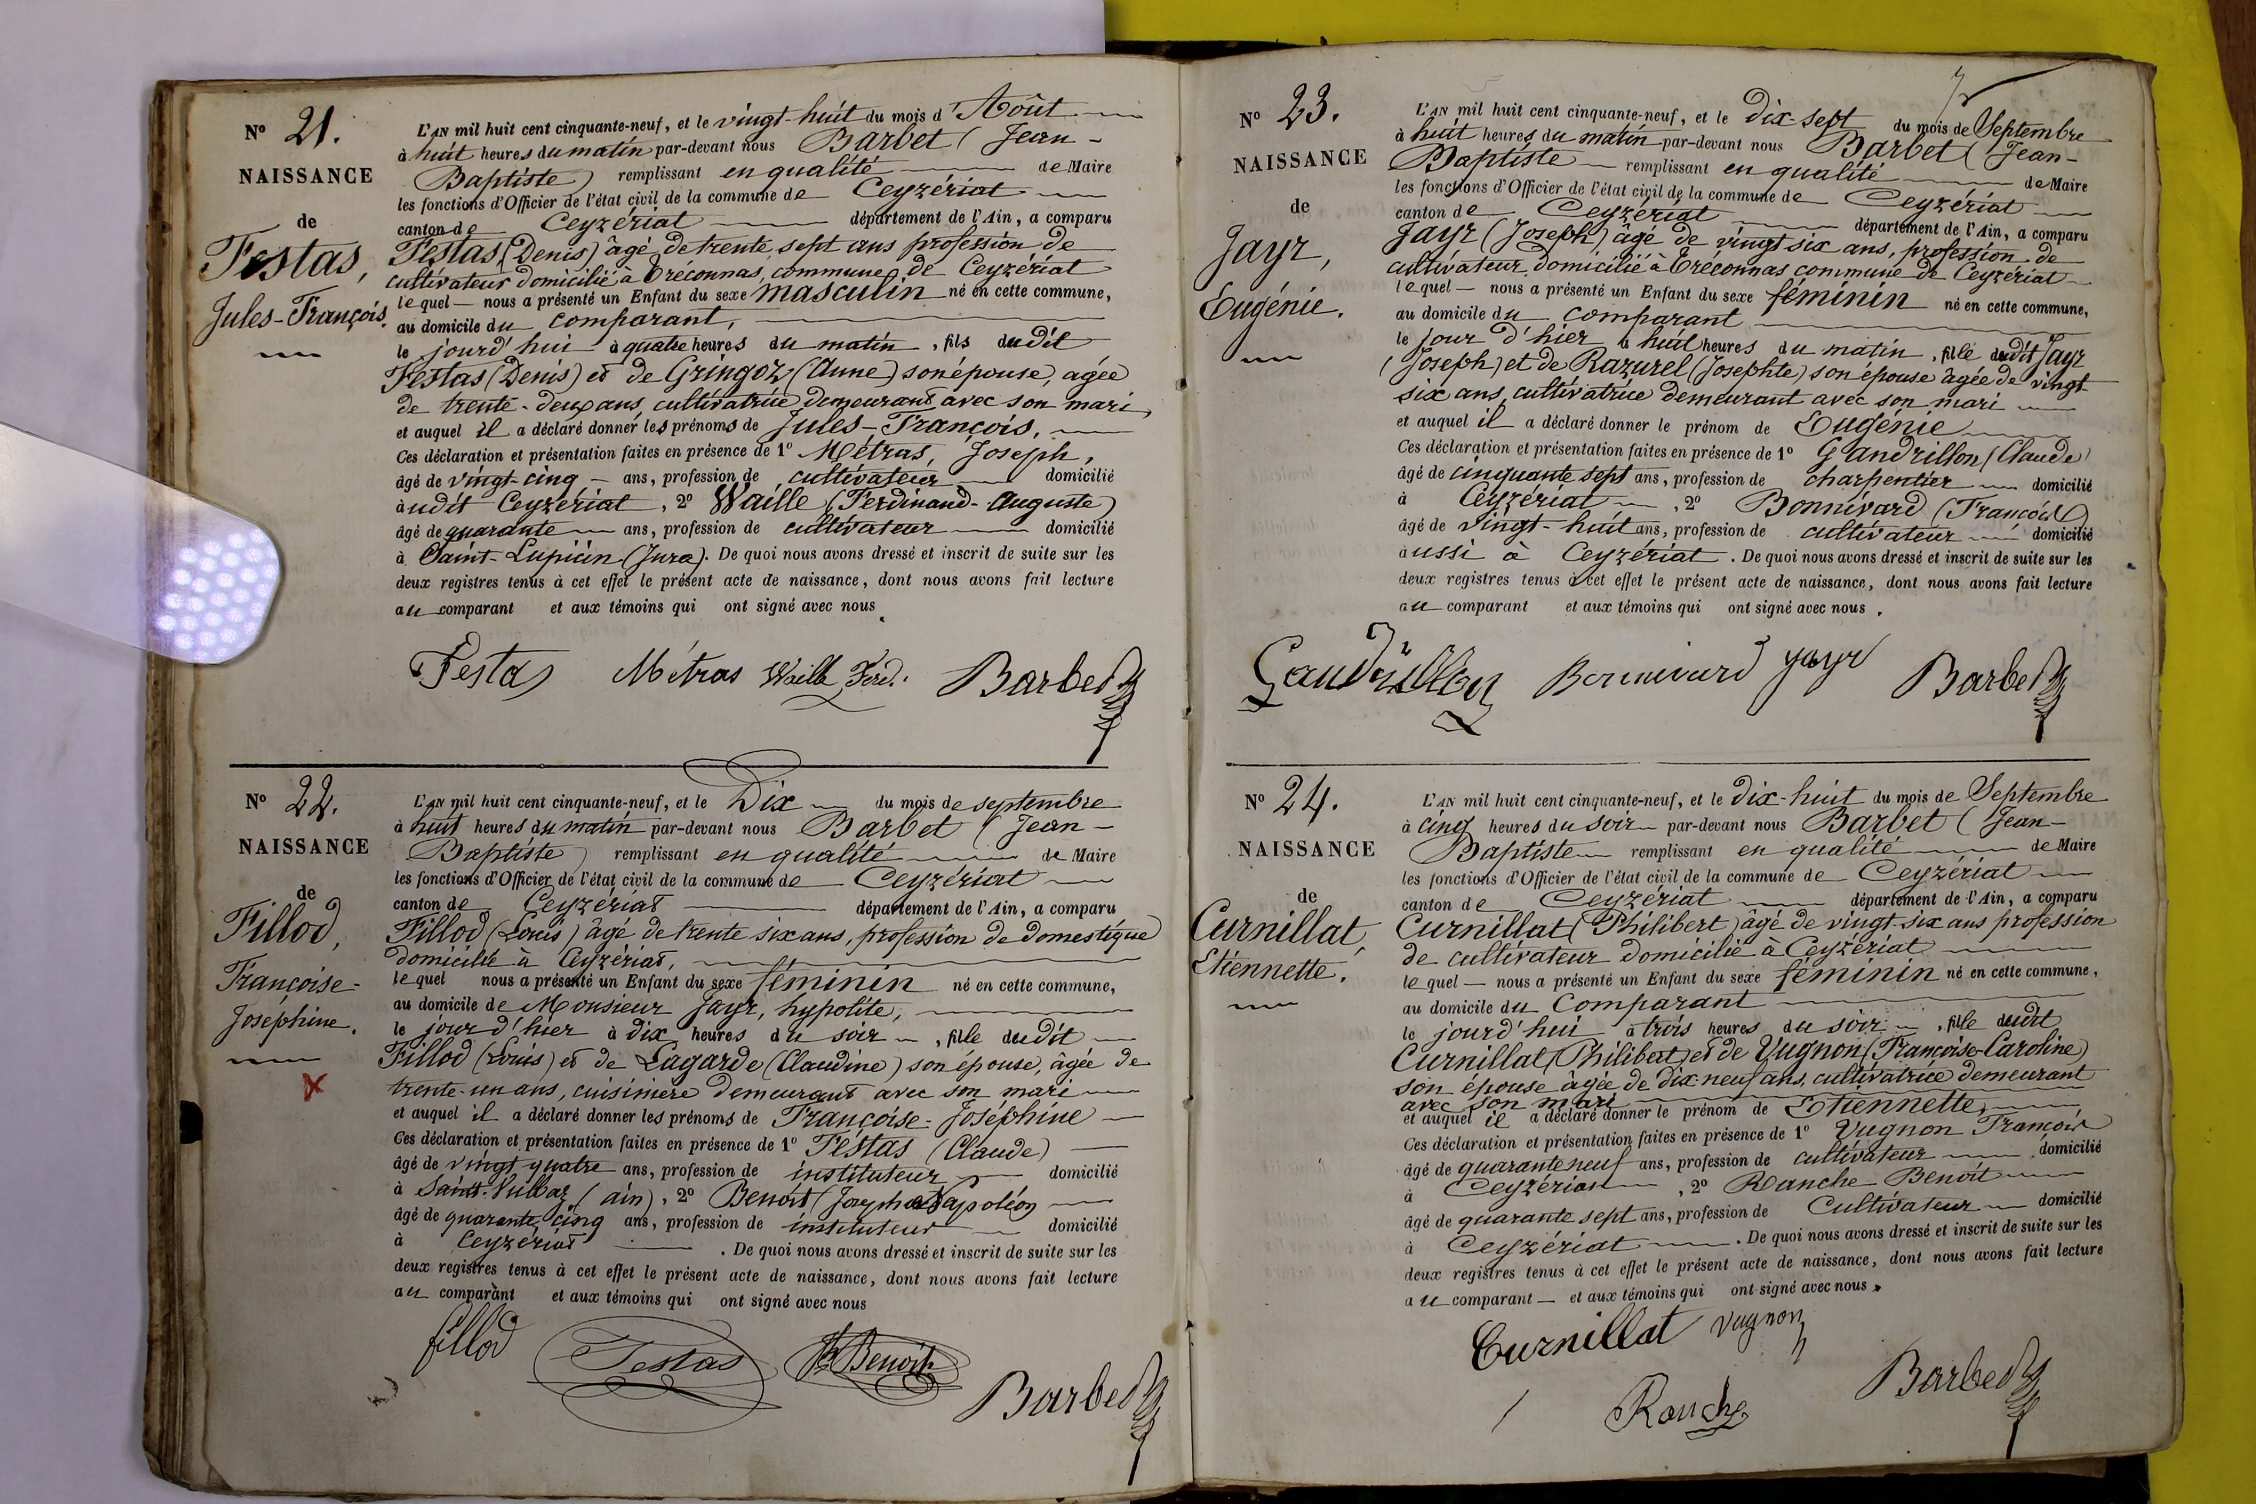 Nº 21.
NAISSANCE
de
Festas,
Jules-François.
L'AN mil huit cent cinquante-neuf, et le vingt-huit du mois d'Août
à huit heures du matin par-devant nous Barbet (Jean-
Baptiste) remplissant en qualité de Maire
les fonctions d'Officier de l'état civil de la commune de Ceyzériat
canton de Ceyzériat département de l'Ain, a comparu
Festas (Denis) âgé de trente sept ans profession de
cultivateur domicilié à Tréconnas, commune de Ceyzériat
lequel nous a présenté un Enfant du sexe masculin né en cette commune,
au domicile du comparant,
le jourd'hui à quatre heures du matin, fils dudit
Festas (Denis) et de Gringoz (Anne) son épouse, agée
de trente-deux ans, cultivatrice demeurant avec son mari,
et auquel il a déclaré donner les prénoms de Jules-François,
Ces déclaration et présentation faites en présence de 1º Métras, Joseph,
âgé de vingt-cinq ans, profession de cultivateur domicilié
audit Ceyzériat, 2º Waille (Ferdinand-Auguste)
âgé de quarante ans, profession de cultivateur domicilié
à Saint-Lupicin (Jura). De quoi nous avons dressé et inscrit de suite sur les
deux registres tenus à cet effet le présent acte de naissance, dont nous avons fait lecture
au comparant et aux témoins qui ont signé avec nous.
Festas Métras Waille Ferd. Barbet
Nº 22.
NAISSANCE
de
Fillod,
Françoise-
Joséphine.
L'AN mil huit cent cinquante-neuf, et le Dix du mois de septembre
à huit heures du matin par-devant nous Barbet (Jean-
Baptiste) remplissant en qualité de Maire
les fonctions d'Officier de l'état civil de la commune de Ceyzériat
canton de Ceyzériat département de l'Ain, a comparu
Fillod (Louis) âgé de trente six ans, profession de domestique
domicilié à Ceyzériat,
lequel nous a présenté un Enfant du sexe féminin né en cette commune,
au domicile de Monsieur Jayr, hypolite,
le jour d'hier à dix heures du soir, fille dudit
Fillod (Louis) et de Lagarde (Claudine) son épouse, âgée de
trente-un ans, cuisinière demeurant avec son mari
et auquel il a déclaré donner les prénoms de Françoise-Joséphine
Ces déclaration et présentation faites en présence de 1º Féstas (Claude)
âgé de vingt quatre ans, profession de instituteur domicilié
à Saint-Vulbaz (ain), 2º Benoit (Joseph Napoléon
âgé de quarante cinq ans, profession de instituteur domicilié
à Ceyzériat. De quoi nous avons dressé et inscrit de suite sur les
deux registres tenus à cet effet le présent acte de naissance, dont nous avons fait lecture
au comparant et aux témoins qui ont signé avec nous
fillod Festas Benoit Barbet
Nº 23.
NAISSANCE
de
Jayr,
Eugénie.
L'AN mil huit cent cinquante-neuf, et le Dix-sept du mois de Septembre
à huit heures du matin par-devant nous Barbet (Jean-
Baptiste remplissant en qualité de Maire
les fonctions d'Officier de l'état civil de la commune de Ceyzériat
canton de Ceyzériat département de l'Ain, a comparu
Jayr (Joseph) âgé de vingt six ans, profession de
cultivateur, domicilié à Tréconnas commune de Ceyzériat
lequel nous a présenté un Enfant du sexe féminin né en cette commune,
au domicile du comparant
le jour d'hier à huit heures du matin, fille dudit Jayr
(Joseph) et de Razurel (Josephte) son épouse âgée de vingt
six ans, cultivatrice demeurant avec son mari
et auquel il a déclaré donner le prénom de Eugénie
Ces déclaration et présentation faites en présence de 1º Gandrillon (Claude)
âgé de cinquante sept ans, profession de charpentier domicilié
à Ceyzériat, 2º Bonnivard (François)
âgé de vingt-huit ans, profession de cultivateur domicilié
aussi à Ceyzériat. De quoi nous avons dressé et inscrit de suite sur les
deux registres tenus à cet effet le présent acte de naissance, dont nous avons fait lecture
au comparant et aux témoins qui ont signé avec nous.
Gandrillon Bonnivard Jayr Barbet
Nº 24.
NAISSANCE
de
Curnillat,
Etiennette.
L'AN mil huit cent cinquante-neuf, et le dix-huit du mois de Septembre
à cinq heures du soir par-devant nous Barbet (Jean-
Baptiste remplissant en qualité de Maire
les fonctions d'Officier de l'état civil de la commune de Ceyzériat
canton de Ceyzériat département de l'Ain, a comparu
Curnillat (Philibert) âgé de vingt-six ans profession
de cultivateur domicilié à Ceyzériat
lequel nous a présenté un Enfant du sexe féminin né en cette commune,
au domicile du Comparant
le jourd'hui à trois heures du soir, fille dudit
Curnillat (Philibert) et de Vugnon (Françoise-Caroline)
son épouse âgée de dix-neuf ans, cultivatrice demeurant
avec son mari
et auquel il a déclaré donner le prénom de Etiennette,
Ces déclaration et présentation faites en présence de 1º Vugnon François
âgé de quarante neuf ans, profession de cultivateur domicilié
à Ceyzériat, 2º Ranche Benoit
âgé de quarante sept ans, profession de Cultivateur domicilié
à Ceyzériat. De quoi nous avons dressé et inscrit de suite sur les
deux registres tenus à cet effet le présent acte de naissance, dont nous avons fait lecture
au comparant et aux témoins qui ont signé avec nous.
Curnillat Vugnon
Ranche Barbet